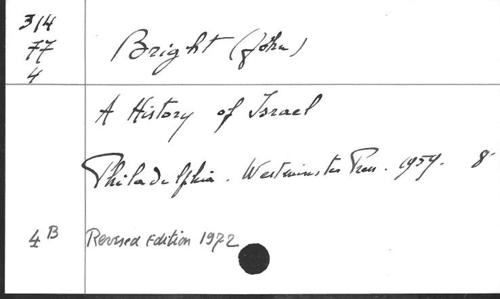 314
77
4
Bright (John)
A History of Israel
Philadelphia. Westminster Press. 1959. 8°
4B Revised Edition 1972